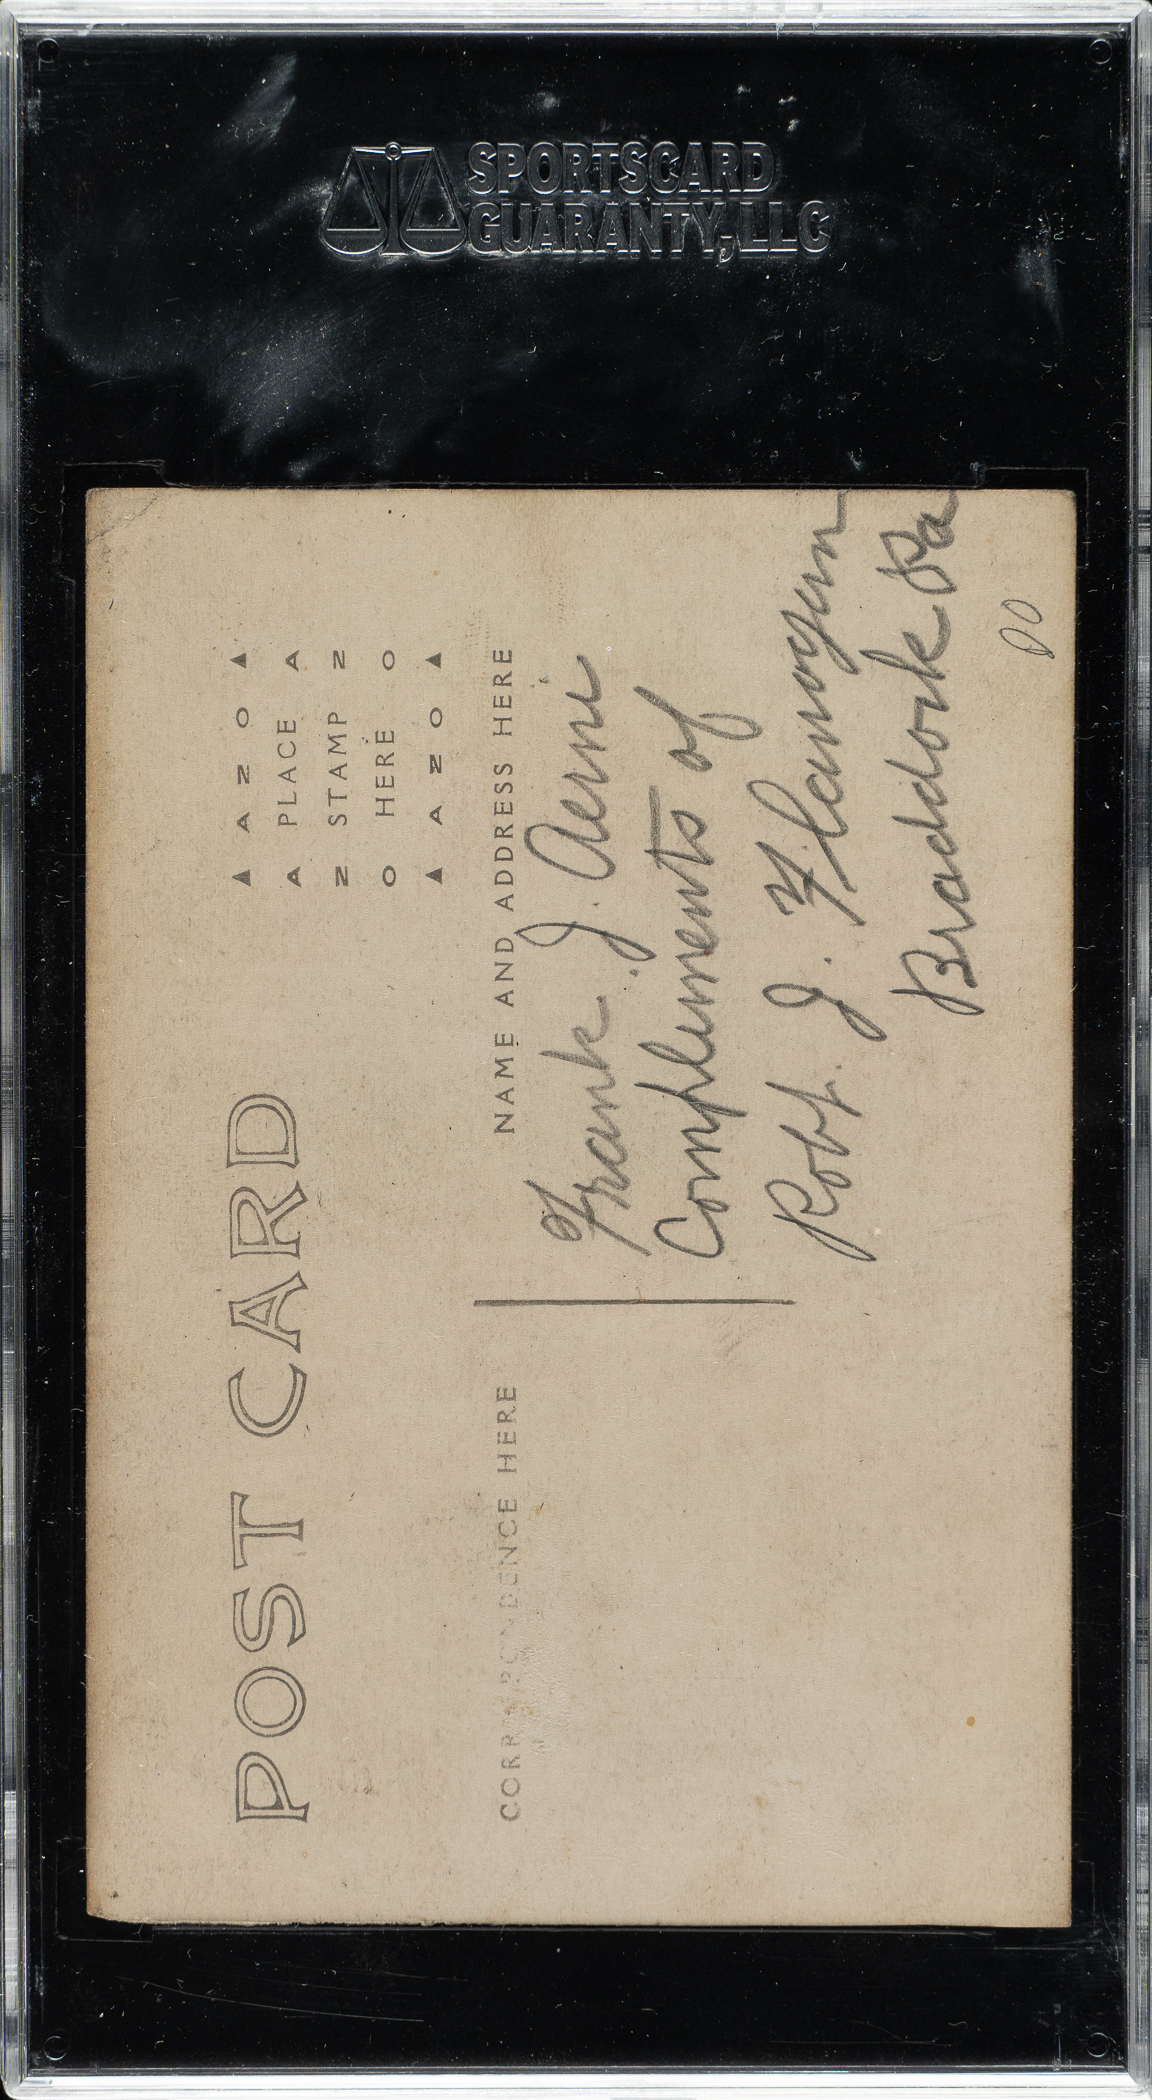 SPORTSCARD
GUARANTY, LLC
POST CARD
▲ A Z O ▲
A PLACE A
Z STAMP Z
O HERE O
▲ A Z O ▲
CORRESPONDENCE HERE
NAME AND ADDRESS HERE
Frank J. Aerni
Compliments of
Robt. J. Flannogan
Braddock Pa